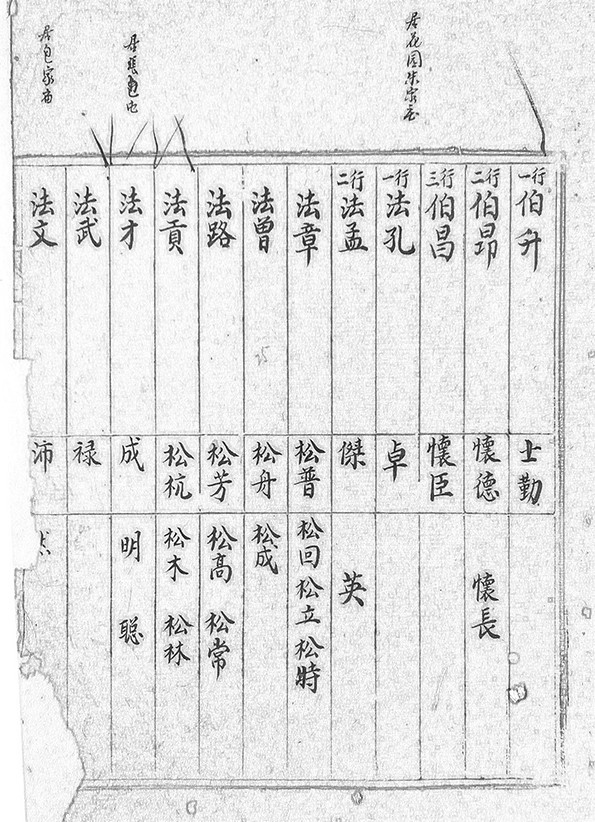 居花园朱家庄
居張通屯
居包家南
一行伯升 士勤
二行伯昂 懷德 懷長
三行伯昌 懷臣
一行法孔 卓
二行法孟 傑 英
法章 松普 松回 松立 松時
法曾 松舟 松成
法路 松芳 松高 松常
法貢 松杭 松木 松林
法才 成 明 聪
法武 禄
法文 沛